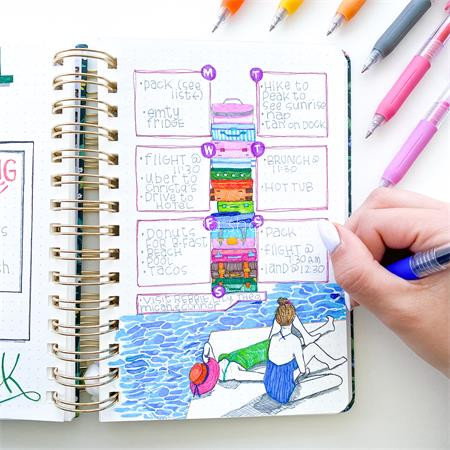 NG
M
·pack (see
list
·emty
fridge
T
·Hike to
peak to
see sunrise
·nap
·tan on dock
W
·flight @
11:30
·Uber to
Christa's
·Drive to
Hotel
T
·BRUNCH @
11:30
·HOT TUB
F
·Donuts
for B-fast
·Beach
·Pool
·Tacos
S
Pack
·flight @
:30 am
·land @ 12:30
S
·Visit